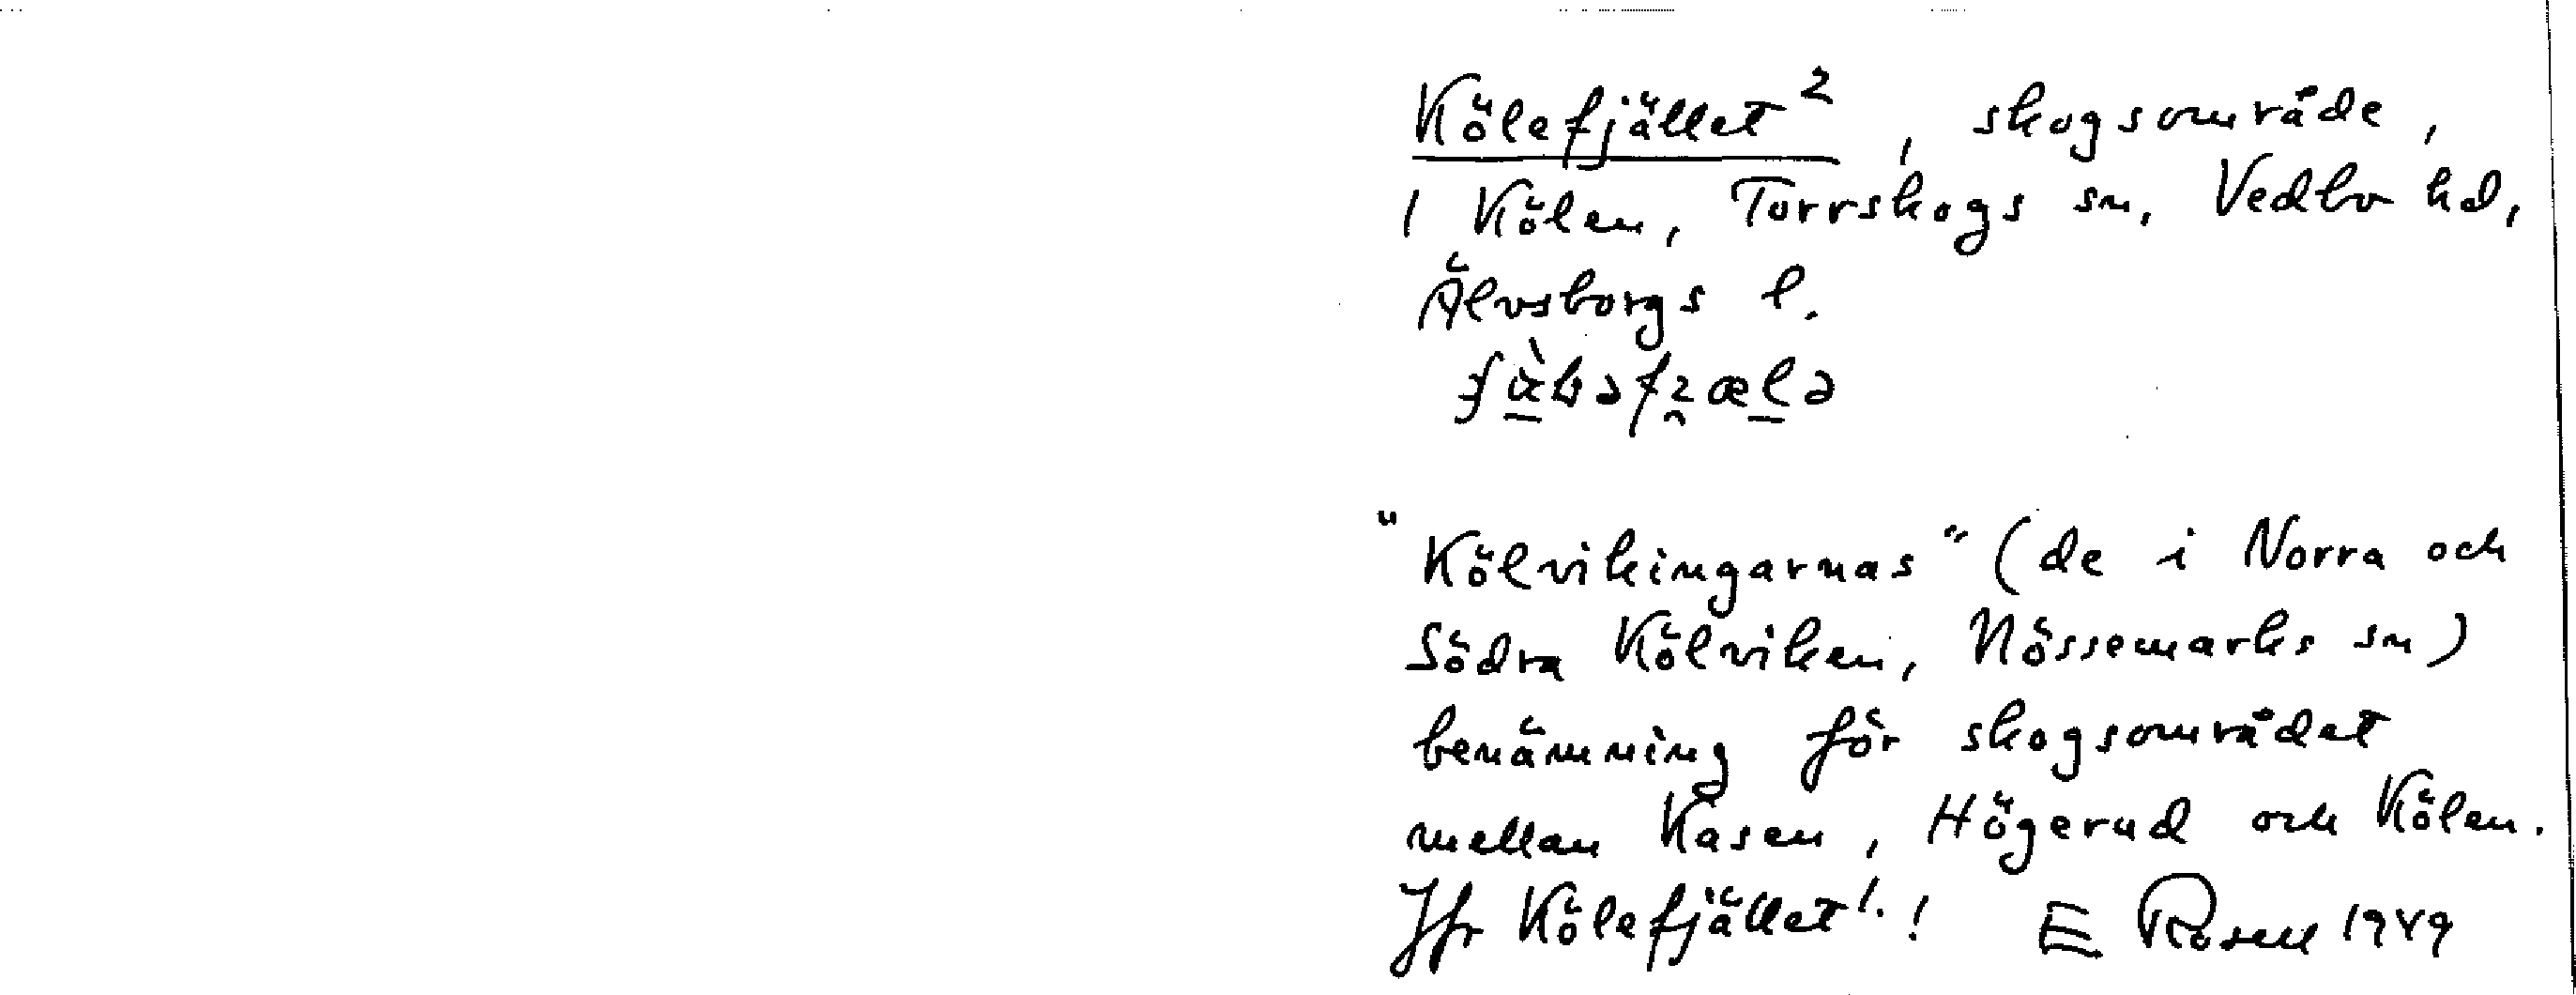 Kölefjället², skogsområde,
i Kölen, Torrskogs sn, Vedbo hd,
Älvsborgs l.
"Kölvikingarnas" (de i Norra och
Södra Kölviken, Nössemarks sn)
benämning för skogsområdet
mellan Kasen, Högerud och Kölen.
Jfr Kölefjället¹.! E Rosell 1949